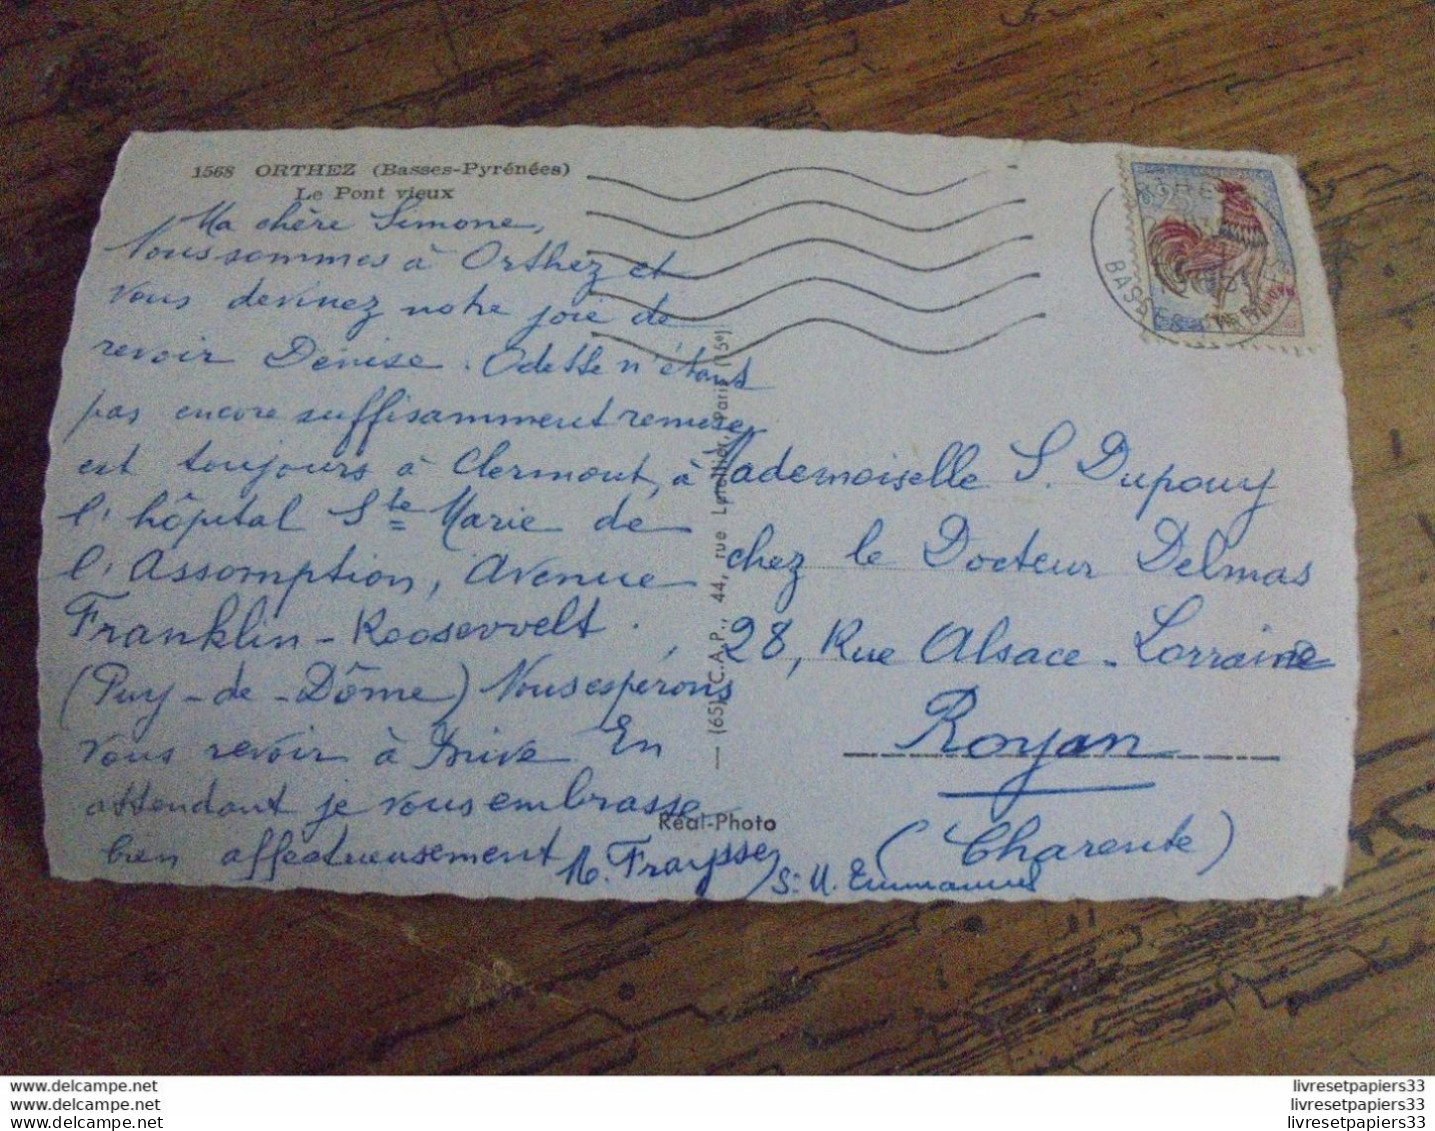 1568 ORTHEZ (Basses-Pyrénées)
Le Pont vieux
Ma chère Simone,
Nous sommes à Orthez et
vous devinez notre joie de
revoir Denise. Odette n'étant
pas encore suffisamment remise
est toujours à Clermont, à
l'hôpital Ste Marie de
l'Assomption, Avenue
Franklin-Roosevelt.
(Puy-de-Dôme) Nous espérons
vous revoir à Brive. En
attendant je vous embrasse
bien affectueusement M. Fraysse
S. M. Emmanuel
(65) C.A.P., 44, rue Paris (15e)
Réal-Photo
Mademoiselle S. Dupouy
chez le Docteur Delmas
28, Rue Alsace-Lorraine
Royan
(Charente)
www.delcampe.net
www.delcampe.net
www.delcampe.net
livresetpapiers33
livresetpapiers33
livresetpapiers33